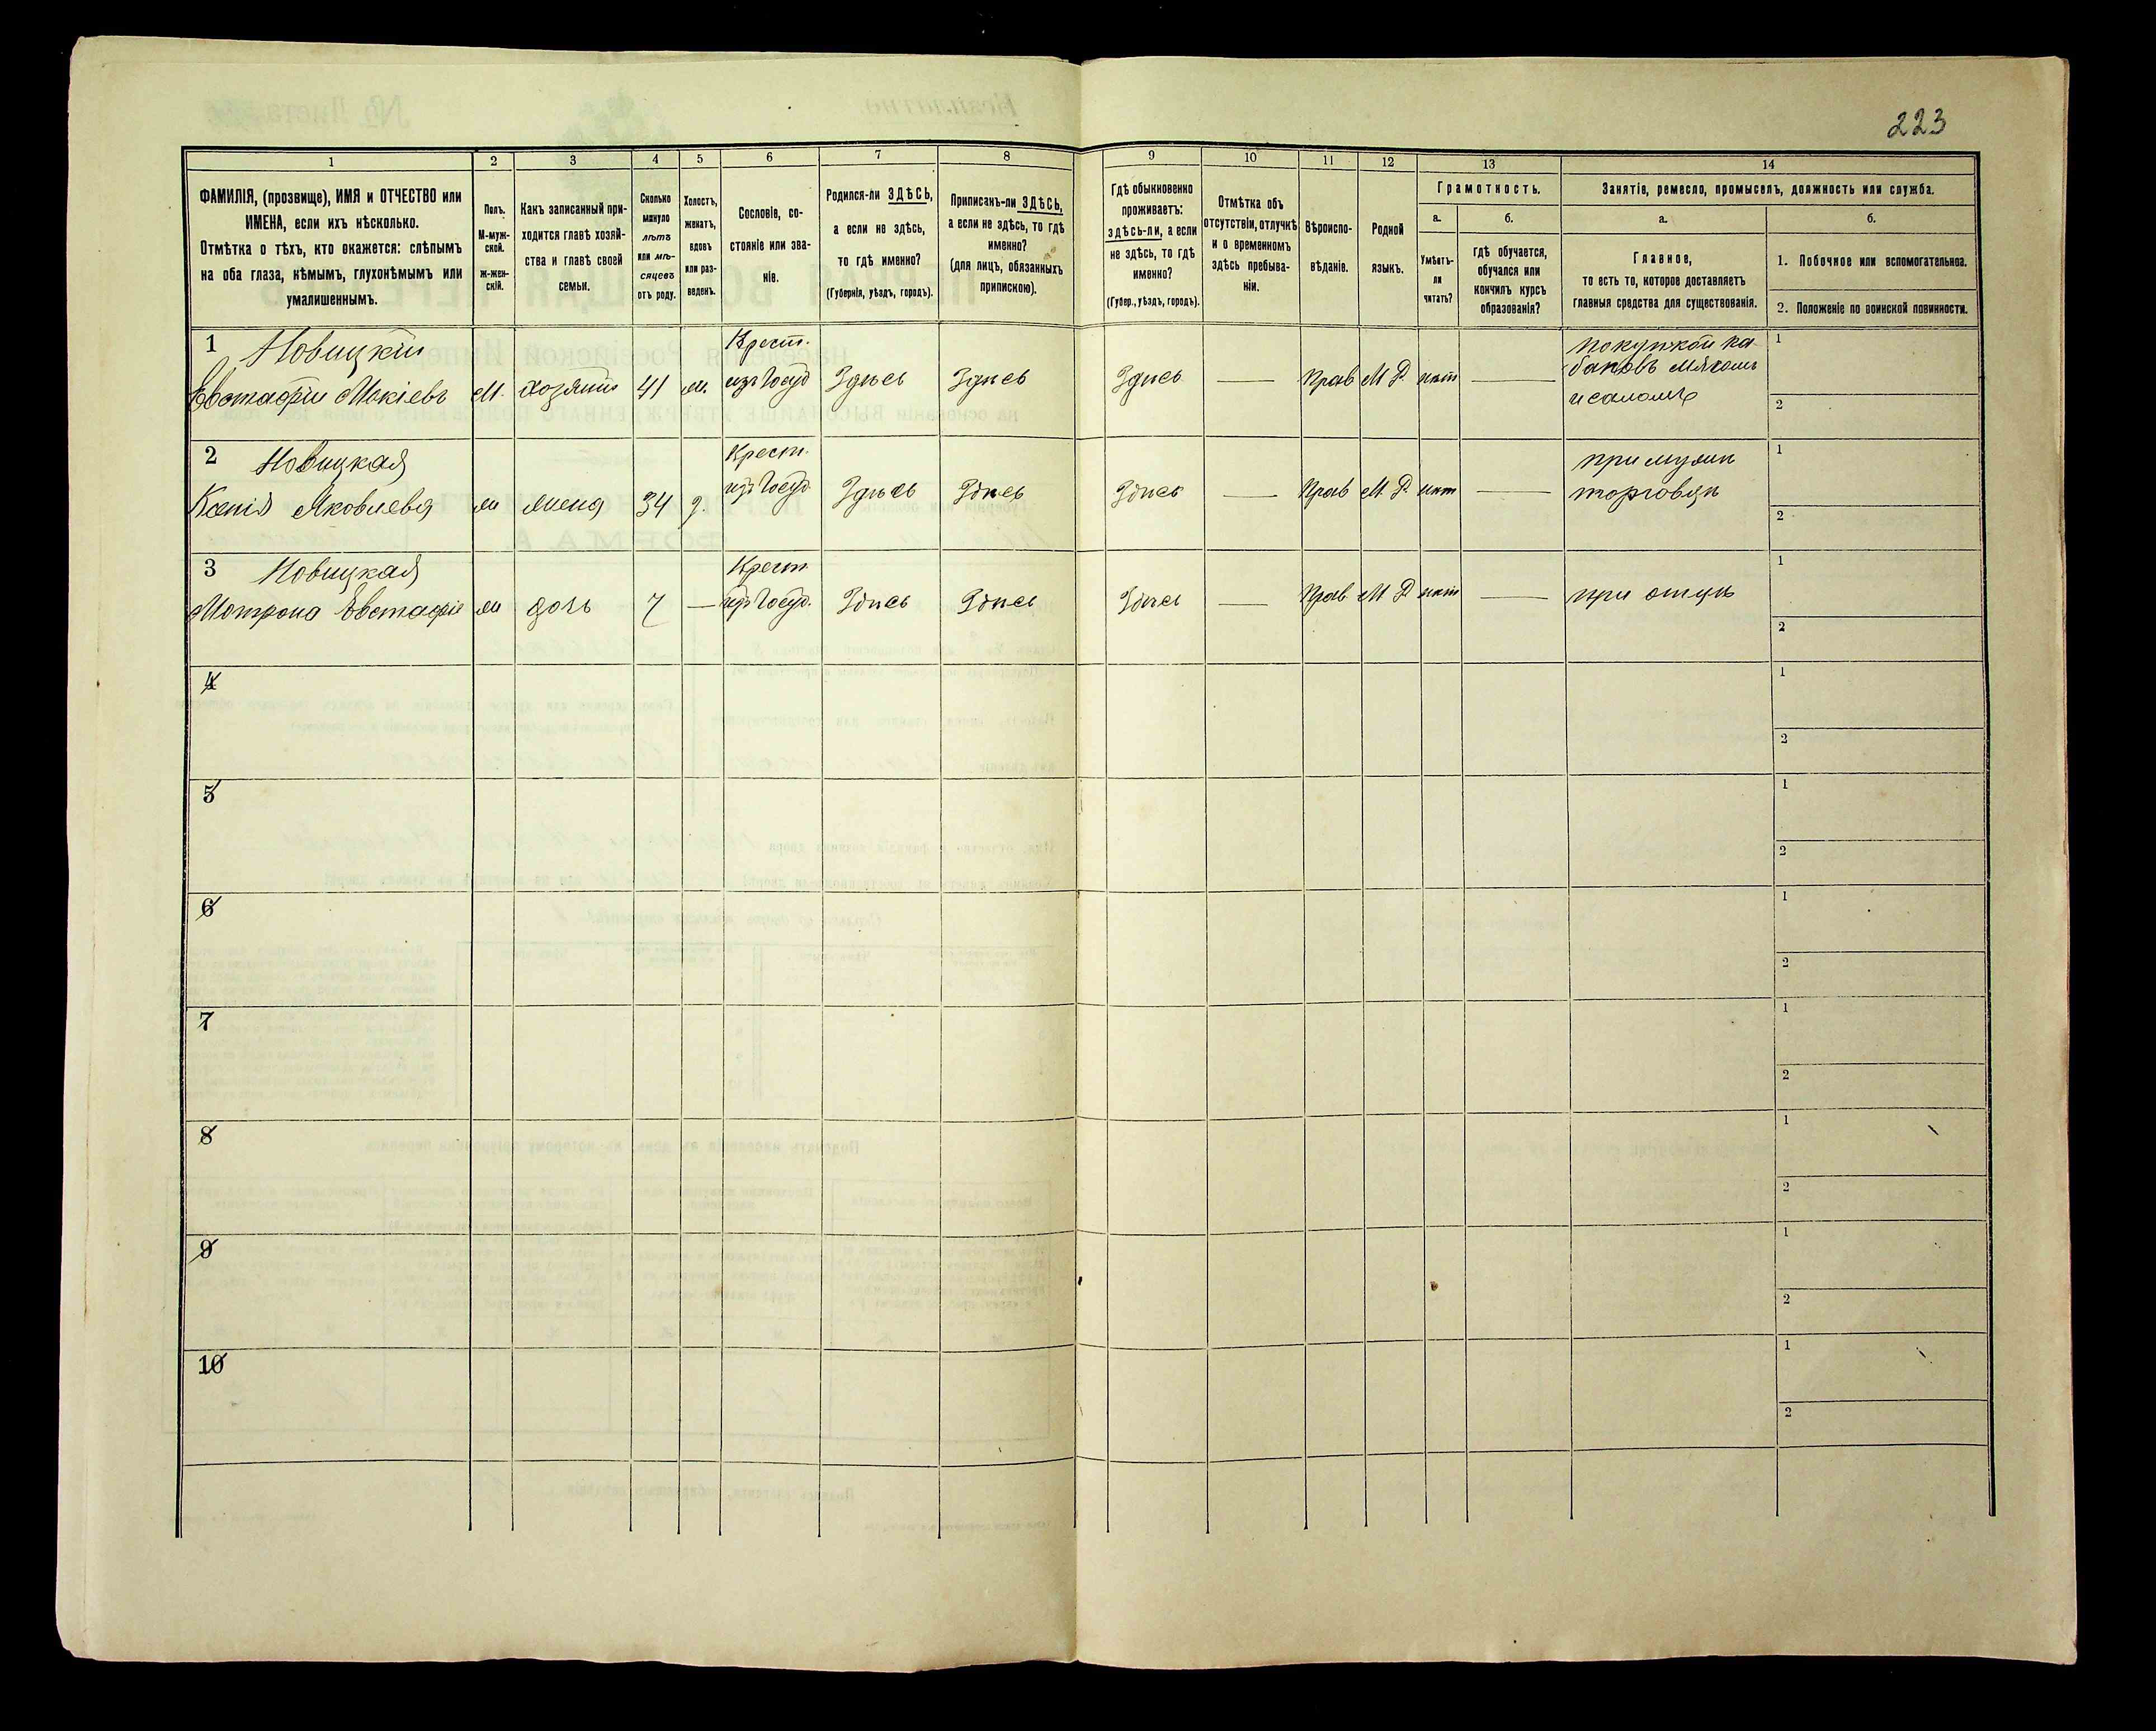 223
1
2
3
4
5
6
7
8
9
10
11
12
13
14
ФАМИЛІЯ, (прозвище), ИМЯ и ОТЧЕСТВО или
ИМЕНА, если ихъ нѣсколько.
Отмѣтка о тѣхъ, кто окажется: слѣпымъ
на оба глаза, нѣмымъ, глухонѣмымъ или
умалишеннымъ.
Полъ.
М-муж-
ской.
ж-жен-
скій.
Какъ записанный при-
ходится главѣ хозяй-
ства и главѣ своей
семьи.
Сколько
минуло
лѣтъ
или мѣ-
сяцевъ
отъ роду.
Холостъ,
женатъ,
вдовъ
или раз-
веденъ.
Сословіе, со-
стояніе или зва-
ніе.
Родился-ли ЗДѢСЬ,
а если не здѣсь,
то гдѣ именно?
(Губернія, уѣздъ, городъ).
Приписанъ-ли ЗДѢСЬ,
а если не здѣсь, то гдѣ
именно?
(для лицъ, обязанныхъ
припискою).
Гдѣ обыкновенно
проживаетъ:
здѣсь-ли, а если
не здѣсь, то гдѣ
именно?
(Губер., уѣздъ, городъ).
Отмѣтка объ
отсутствіи, отлучкѣ
и о временномъ
здѣсь пребыва-
ніи.
Вѣроиспо-
вѣданіе.
Родной
языкъ.
Грамотность.
а.
б.
Умѣетъ-
ли
читать?
гдѣ обучается,
обучался или
кончилъ курсъ
образованія?
Занятіе, ремесло, промыселъ, должность или служба.
а.
б.
Главное,
то есть то, которое доставляетъ
главныя средства для существованія.
1. Побочное или вспомогательное.
2. Положеніе по воинской повинности.
1 Новицкій
Евстафій Мокіевъ М. хозяинъ 41 ж. Крест. изъ Госуд Здѣсь Здѣсь Здѣсь — Прав М Р нѣт — покупкой ка-
бановъ мясомъ
и саломъ
1
2
2 Новицкая
Ксенія Яковлева ж жена 34 з. Крест. изъ Госуд. Здѣсь Здѣсь Здѣсь — Прав М. Р. нѣт — при мужѣ
торговцѣ
1
2
3 Новицкая
Мотрона Евстафіе ж дочь 7 — Крест изъ Госуд. Здѣсь Здѣсь Здѣсь — Прав М Р нѣт — при отцѣ
1
2
4
1
2
5
1
2
6
1
2
7
1
2
8
1
2
9
1
2
10
1
2